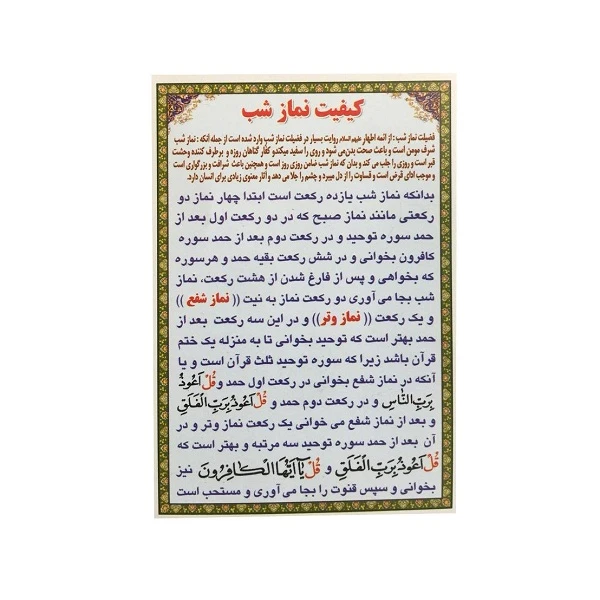 کیفیت نماز شب
فضیلت نماز شب : از ائمه اطهار علیهم‌السلام روایت بسیار در فضیلت نماز شب وارد شده است از جمله آنکه : نماز شب
شرف مومن است و باعث صحت بدن می شود و روی را سفید میکند و کفار گناهان روزه و برطرف کننده وحشت
قبر است و روزی را جلب می کند و بدان که نماز شب ضامن روزی روز است و همچنین باعث شرافت و بزرگواری است
و موجب ادای قرض است و قساوت را از دل میبرد و چشم را جلا می دهد و آثار معنوی زیادی برای انسان دارد.
بدانکه نماز شب یازده رکعت است ابتدا چهار نماز دو
رکعتی مانند نماز صبح که در دو رکعت اول بعد از
حمد سوره توحید و در رکعت دوم بعد از حمد سوره
کافرون بخوانی و در شش رکعت بقیه حمد و هرسوره
که بخواهی و پس از فارغ شدن از هشت رکعت، نماز
شب بجا می آوری دو رکعت نماز به نیت (( نماز شفع ))
و یک رکعت (( نماز وتر)) و در این سه رکعت بعد از
حمد بهتر است که توحید بخوانی تا به منزله یک ختم
قرآن باشد زیرا که سوره توحید ثلث قرآن است و یا
آنکه در نماز شفع بخوانی در رکعت اول حمد و قُلْ اَعُوذُ
بِرَبِّ النّاسِ و در رکعت دوم حمد و قُلْ اَعُوذُ بِرَبِّ الْفَلَقِ
و بعد از نماز شفع می خوانی یک رکعت نماز وتر و در
آن بعد از حمد سوره توحید سه مرتبه و بهتر است که
قُلْ اَعُوذُ بِرَبِّ الْفَلَقِ و قُلْ یا اَیُّهَا الْکافِرُونَ نیز
بخوانی و سپس قنوت را بجا می آوری و مستحب است